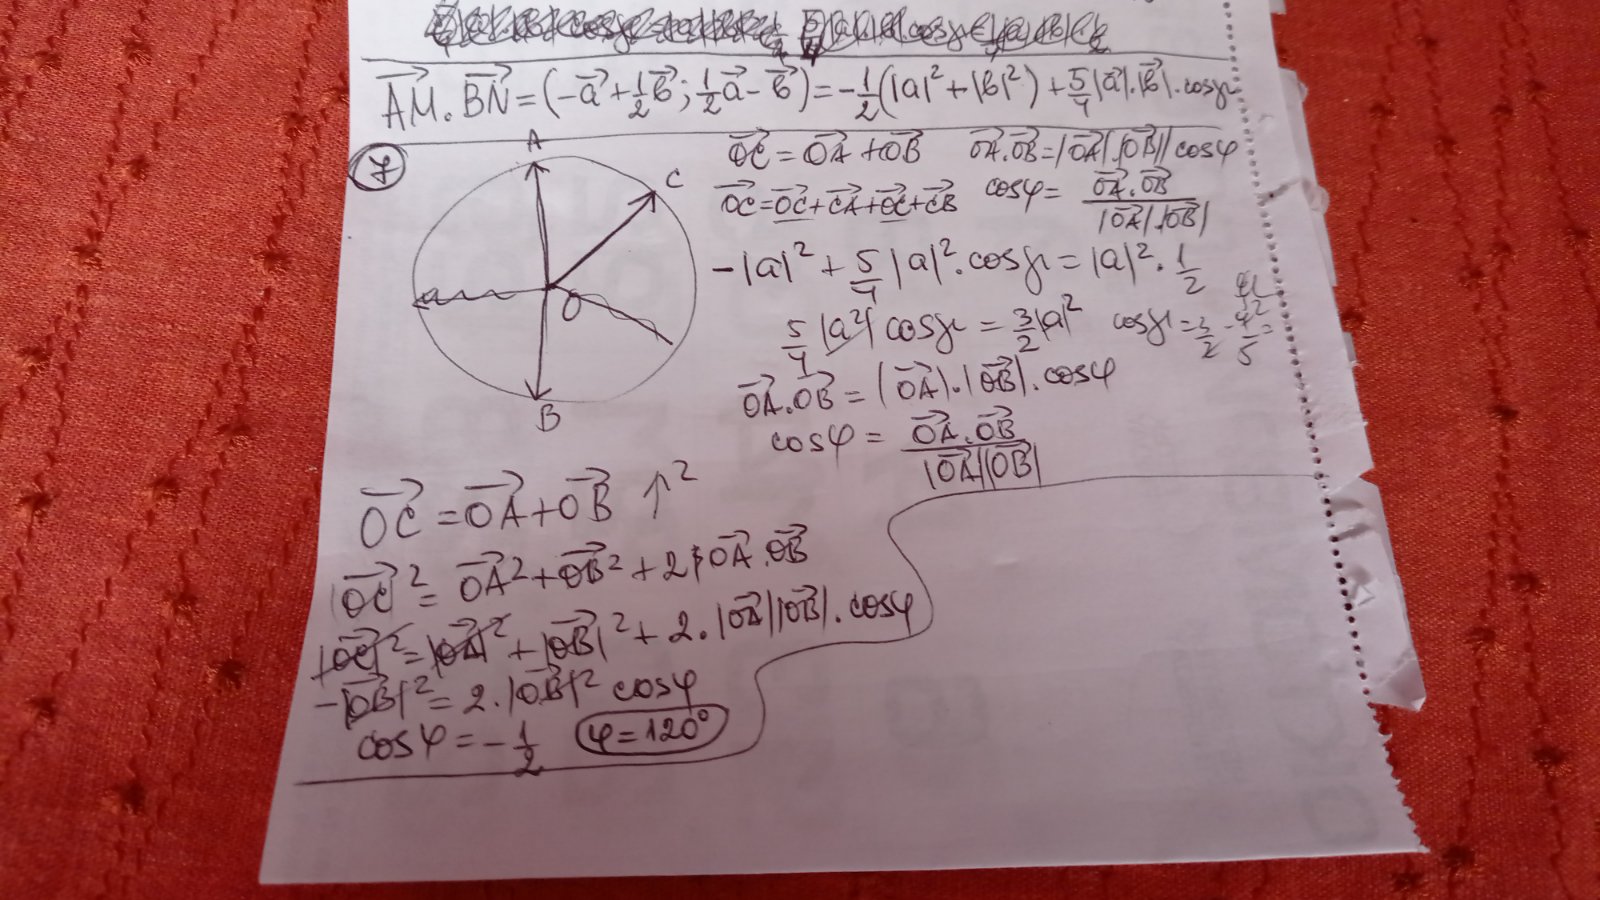 AM⃗.BN⃗ = (-a⃗ + 1/2 b⃗ ; 1/2 a⃗ - b⃗) = -1/2(|a|² + |b|²) + 5/4|a⃗|.|b⃗|.cosγ
7
A
C
a
O
B
OC⃗ = OA⃗ + OB⃗ OA⃗.OB⃗ = |OA⃗|.|OB⃗| cosφ
OC⃗ = OC⃗ + CA⃗ + OC⃗ + CB⃗ cosφ = OA⃗.OB⃗ / |OA⃗|.|OB⃗|
-|a|² + 5/4 |a|².cosγ = |a|² . 1/2
5/4 |a²| cosγ = 3/2 |a|² cosγ = 3/2 . 4²/5 =
OA⃗.OB⃗ = |OA⃗|.|OB⃗|.cosφ
cosφ = OA⃗.OB⃗ / |OA⃗||OB⃗|
OC⃗ = OA⃗ + OB⃗ ↑²
|OC⃗|² = OA⃗² + OB⃗² + 2 OA⃗.OB⃗
|OC⃗|² = |OA⃗|² + |OB⃗|² + 2.|OA⃗||OB⃗|.cosφ
-|OB⃗|² = 2.|OB⃗|² cosφ
cosφ = -1/2 φ = 120°